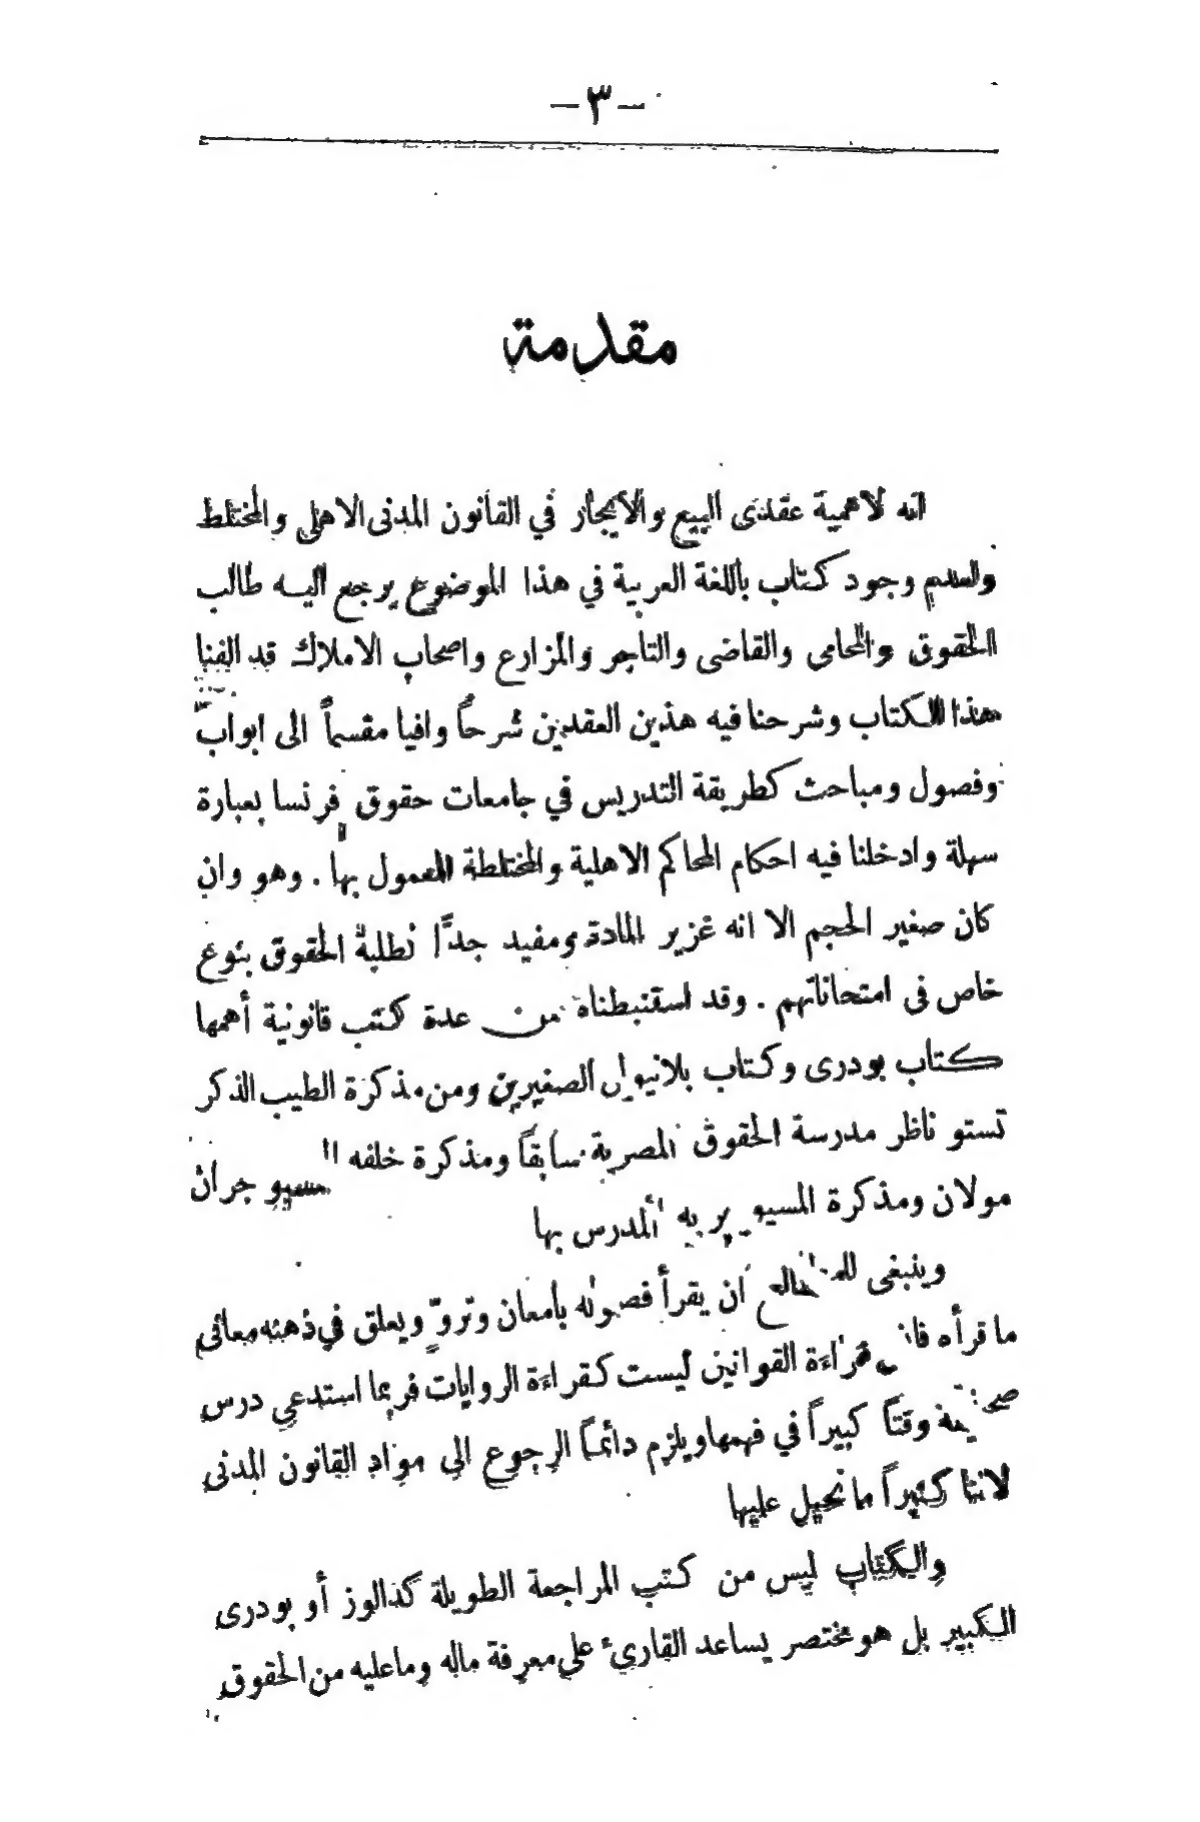 — ٣ —
مقدمة
انه لاهمية عقدى البيع والايجار في القانون المدنى الاهلى والمختلط
ولعدم وجود كتاب باللغة العربية في هذا الموضوع يرجع اليه طالب
الحقوق والمحامى والقاضى والتاجر والمزارع واصحاب الاملاك قد الفنا
هذا الكتاب وشرحنا فيه هذين العقدين شرحاً وافيا مقسماً الى ابواب
وفصول ومباحث كطريقة التدريس في جامعات حقوق فرنسا بعبارة
سهلة وادخلنا فيه احكام المحاكم الاهلية والمختلطة المعمول بها . وهو وان
كان صغير الحجم الا انه غزير المادة ومفيد جدًّا لطلبة الحقوق بنوع
خاص فى امتحاناتهم . وقد استنبطناه من عدة كتب قانونية أهمها
كتاب بودرى وكتاب بلانيول الصغيرين ومن مذكرة الطيب الذكر
تستو ناظر مدرسة الحقوق المصرية سابقاً ومذكرة خلفه المسيو جران
مولان ومذكرة المسيو بريه المدرس بها
وينبغى للمطالع ان يقرأ فصوله بامعان وتروٍّ ويعلق في ذهنه معانى
ما قرأه فان قراءة القوانين ليست كقراءة الروايات فربما استدعي درس
صحيفة وقتاً كبيراً في فهمها ويلزم دائماً الرجوع الى مواد القانون المدنى
لاننا كثيراً ما نحيل عليها
والكتاب ليس من كتب المراجعة الطويلة كدالوز أو بودرى
الكبير بل هو مختصر يساعد القارئ على معرفة ماله وما عليه من الحقوق